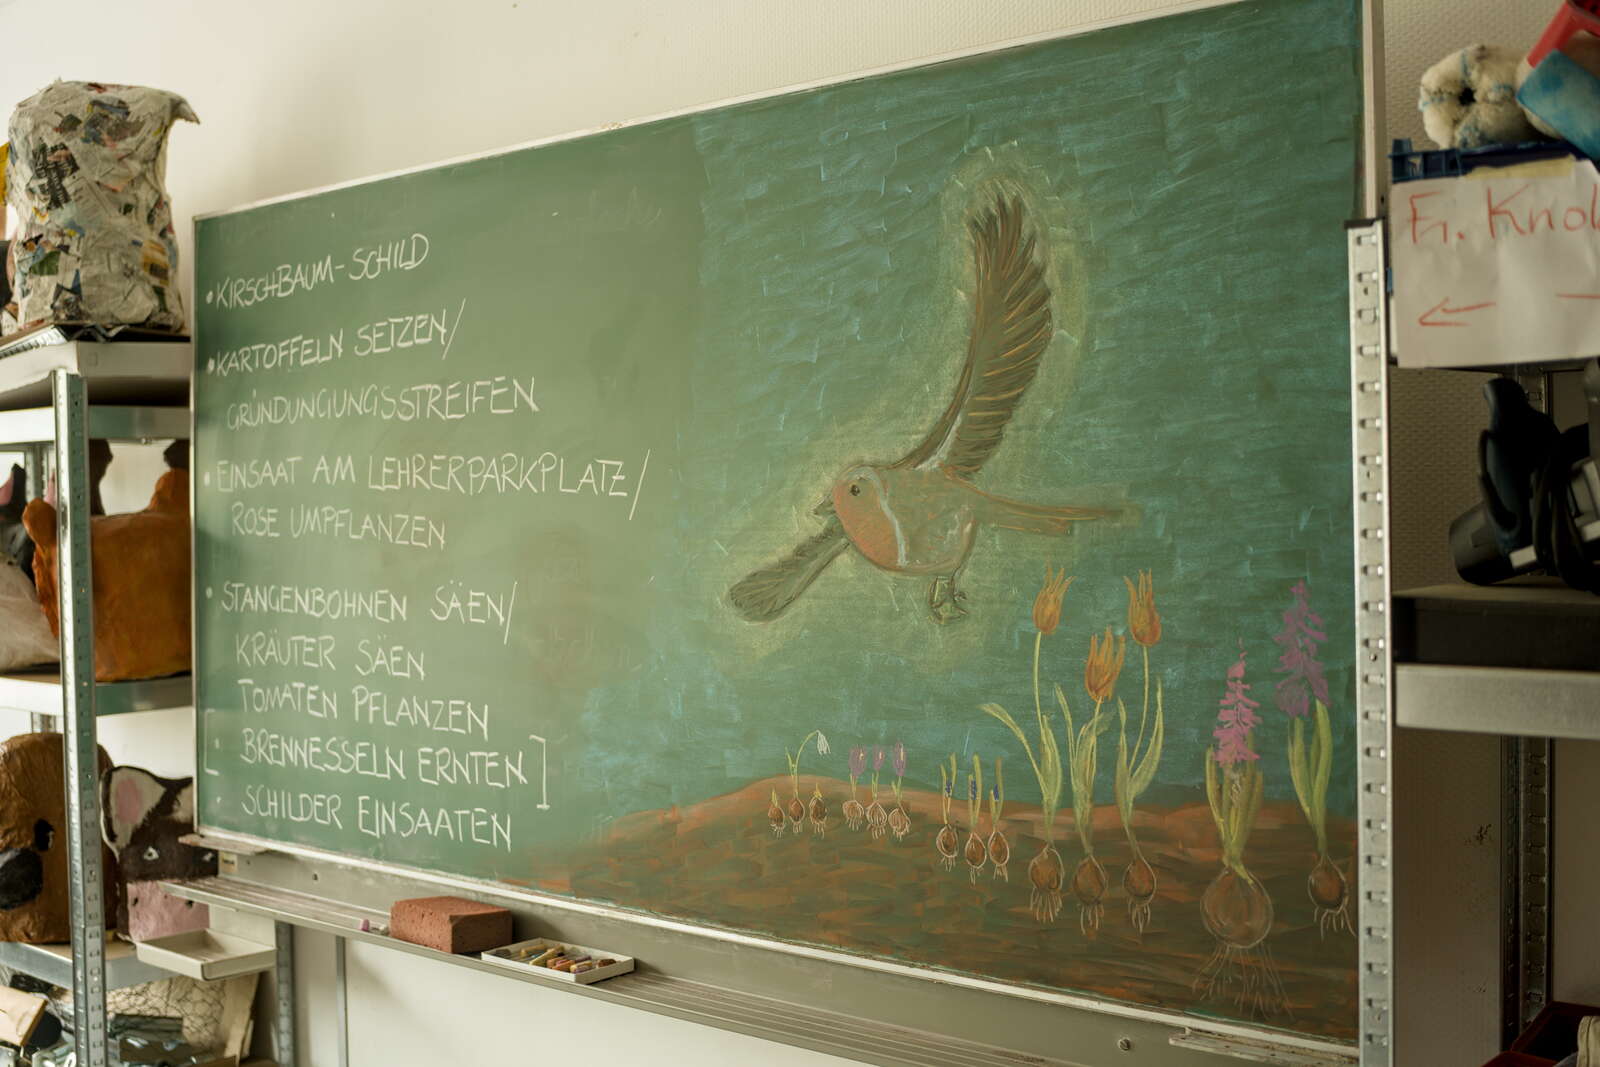 • KIRSCHBAUM-SCHILD
• KARTOFFELN SETZEN/
GRÜNDUNGUNGSSTREIFEN
• EINSAAT AM LEHRERPARKPLATZ/
ROSE UMPFLANZEN
• STANGENBOHNEN SÄEN/
KRÄUTER SÄEN
TOMATEN PFLANZEN
[• BRENNESSELN ERNTEN]
• SCHILDER EINSAATEN
Fr. Knol